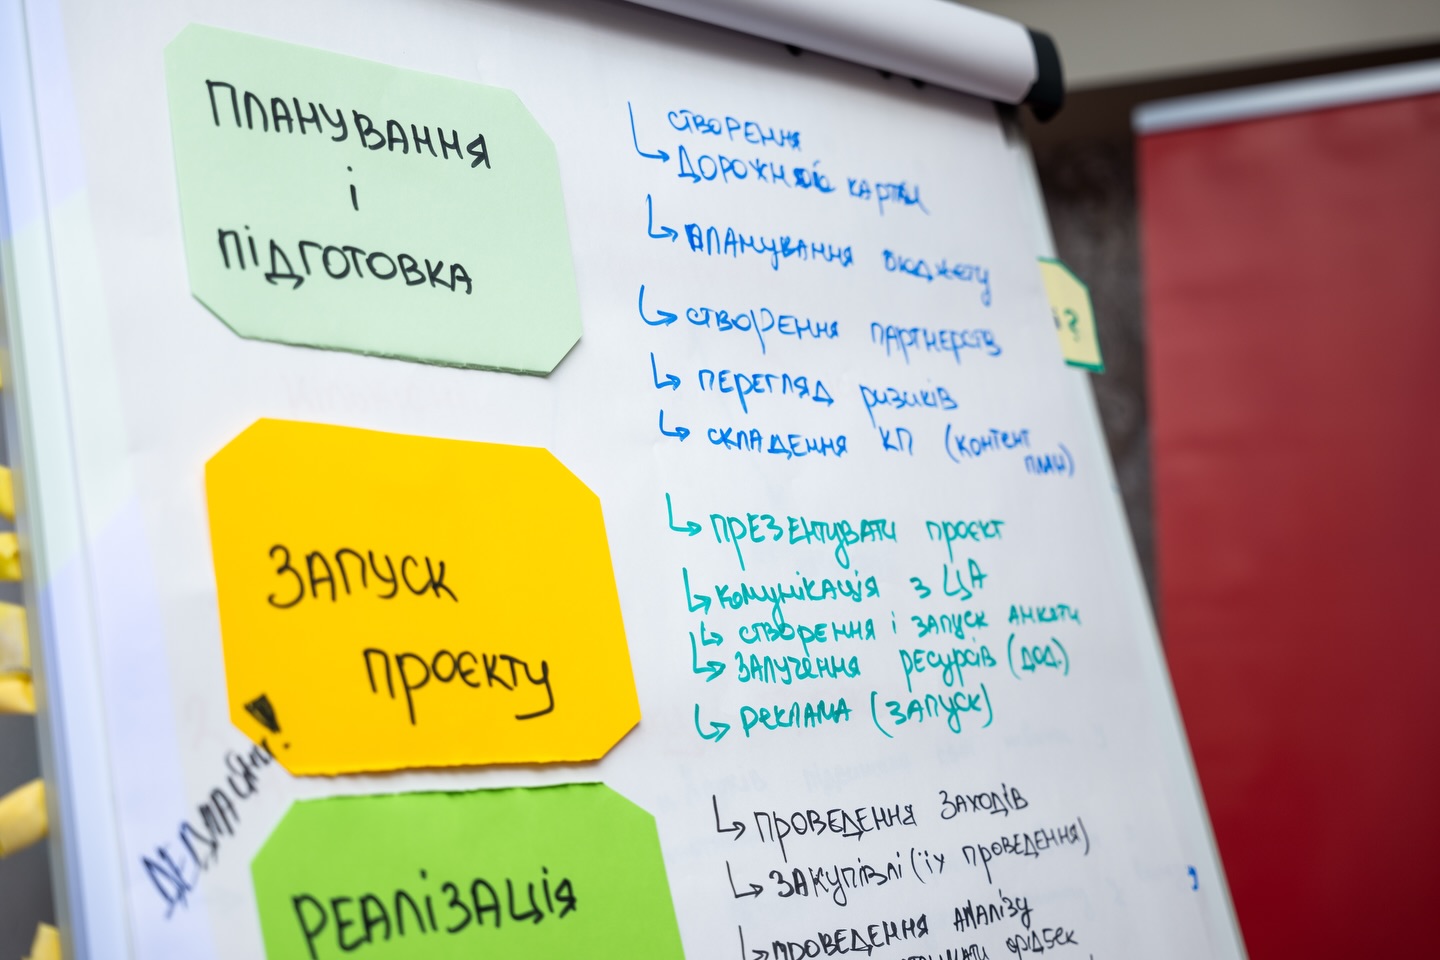 ПЛАНУВАННЯ
і
ПІДГОТОВКА
СТВОРЕННЯ
ДОРОЖНЬОЇ КАРТИ
ПЛАНУВАННЯ БЮДЖЕТУ
СТВОРЕННЯ ПАРТНЕРСТВ
ПЕРЕГЛЯД РИЗИКІВ
СКЛАДЕННЯ КП (КОНТЕНТ
ПЛАН)
ЗАПУСК
ПРОЄКТУ
ПРЕЗЕНТУВАТИ ПРОЄКТ
КОМУНІКАЦІЯ З ЦА
СТВОРЕННЯ І ЗАПУСК АНКЕТИ
ЗАЛУЧЕННЯ РЕСУРСІВ (ДОД.)
РЕКЛАМА (ЗАПУСК)
ДЕДЛАЙНИ!
РЕАЛІЗАЦІЯ
ПРОВЕДЕННЯ ЗАХОДІВ
ЗАКУПІВЛІ (ЇХ ПРОВЕДЕННЯ)
ПРОВЕДЕННЯ АНАЛІЗУ
ФІДБЕК